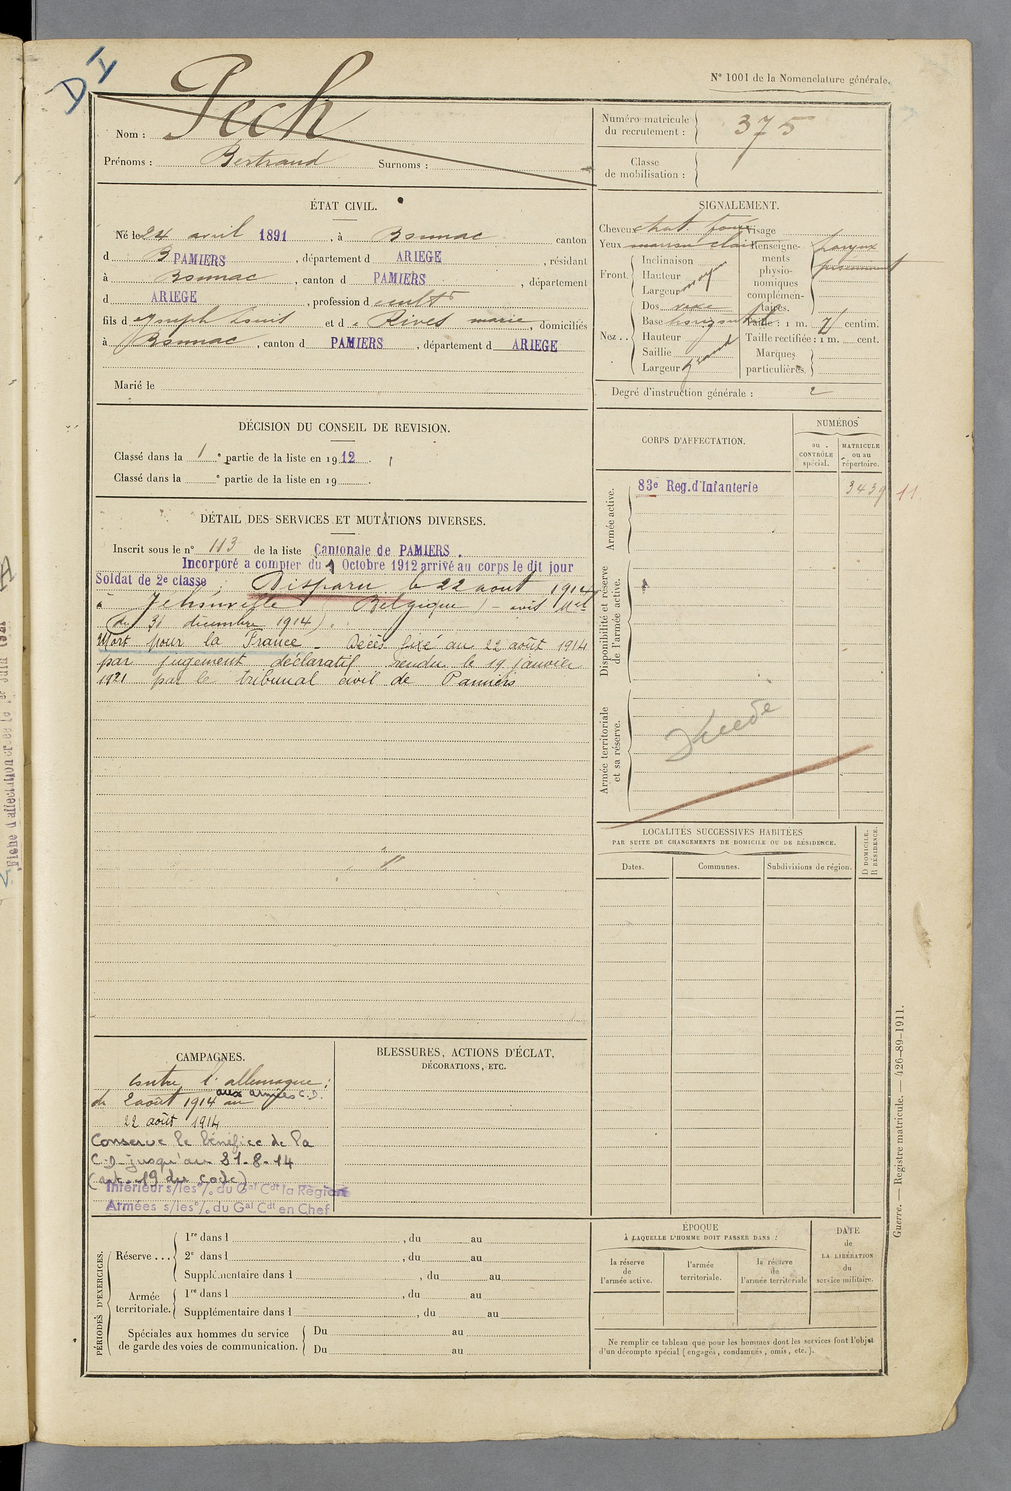 D I
N° 1001 de la Nomenclature générale.
Nom : Pech
Prénoms : Bertrand Surnoms :
Numéro matricule du recrutement : 375
Classe de mobilisation :
ÉTAT CIVIL.
Né le 24 avril 1891, à Bonnac canton
d PAMIERS, département d ARIEGE, résidant
à Bonnac, canton d PAMIERS, département
d ARIEGE, profession d cultr
fils d Joseph Louis et d e Rives marie, domiciliés
à Bonnac, canton d PAMIERS, département d ARIEGE
Marié le
SIGNALEMENT.
Cheveux chat. foncé Visage
Yeux marron clair Renseignements physionomiques complémentaires. Larynx proéminent
Front. Inclinaison
Hauteur moyen
Largeur
Nez .. Dos vexe
Base horizontale Taille : 1 m. 71 centim.
Hauteur Taille rectifiée : 1 m. cent.
Saillie grand Marques
Largeur particulières.
Degré d'instruction générale : 2
DÉCISION DU CONSEIL DE REVISION.
Classé dans la 1e partie de la liste en 1912.
Classé dans la e partie de la liste en 19 .
CORPS D'AFFECTATION.
NUMÉROS
au CONTRÔLE spécial.
MATRICULE ou au répertoire.
Armée active.
83e Reg. d'Infanterie 3439 11.
Disponibilité et réserve de l'armée active.
Armée territoriale et sa réserve.
DÉTAIL DES SERVICES ET MUTATIONS DIVERSES.
Inscrit sous le n° 113 de la liste Cantonale de PAMIERS.
Incorporé a compter du 9 Octobre 1912 arrivé au corps le dit jour
Soldat de 2e classe, Disparu le 22 aout 1914
à Jehonville (Belgique) - avis Mel
(du 31 décembre 1914).
Mort pour la France - Décès fixé au 22 août 1914
par jugement déclaratif rendu le 19 janvier
1921 par le tribunal civil de Pamiers
Décédé
LOCALITÉS SUCCESSIVES HABITÉES
PAR SUITE DE CHANGEMENTS DE DOMICILE OU DE RÉSIDENCE.
Dates. Communes. Subdivisions de région. D DOMICILE. R RÉSIDENCE.
CAMPAGNES.
Contre l'allemagne :
du 2 août 1914 au aux armées C.D.
22 août 1914
Conserve le bénéfice de la
C.D. jusqu'au 31-8-14
(art. 19 du code)
Intérieur s/les o/. du Gal Cdt la Région
Armées s/les o/. du Gal Cdt en Chef
BLESSURES, ACTIONS D'ÉCLAT,
DÉCORATIONS, ETC.
PÉRIODES D'EXERCICES.
Réserve ... 1re dans l , du au
2e dans l , du au
Supplémentaire dans l , du au
Armée territoriale. 1re dans l , du au
Supplémentaire dans l , du au
Spéciales aux hommes du service de garde des voies de communication. Du au
Du au
ÉPOQUE
À LAQUELLE L'HOMME DOIT PASSER DANS :
la réserve de l'armée active.
l'armée territoriale.
la réserve de l'armée territoriale
DATE de LA LIBÉRATION du service militaire.
Ne remplir ce tableau que pour les hommes dont les services font l'objet
d'un décompte spécial (engagés, condamnés, omis, etc.).
Guerre. — Registre matricule. — 426-89-1911.